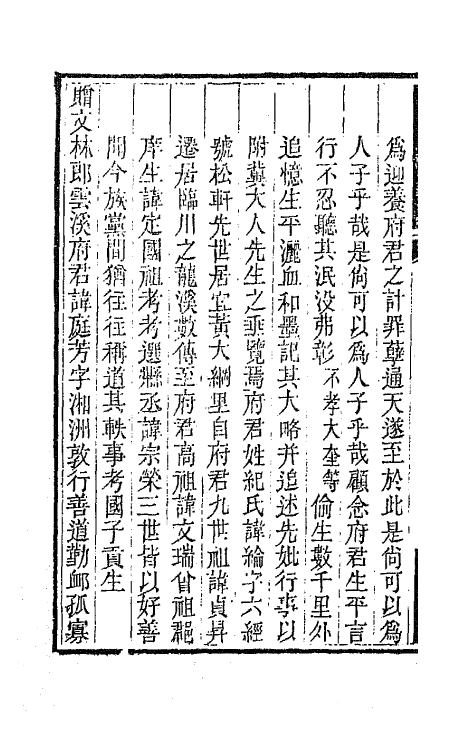 爲迎養府君之計罪孽通天遂至於此是尙可以爲
人子乎哉是尙可以爲人子乎哉顧念府君生平言
行不忍聽其泯没弗彰不孝大奎等偷生數千里外
追憶生平灑血和墨記其大略并追述先妣行事以
附冀大人先生之垂覽焉府君姓紀氏諱綸字六經
號松軒先世居宜黃大綱里自府君九世祖諱貞昇
遷居臨川之龍溪數傳至府君高祖諱文瑞曾祖郡
庠生諱定國祖考考選縣丞諱宗榮三世皆以好善
聞今族黨間猶往往稱道其軼事考國子貢生
贈文林郎雲溪府君諱庭芳字湘洲敦行善道勤䘏孤寡